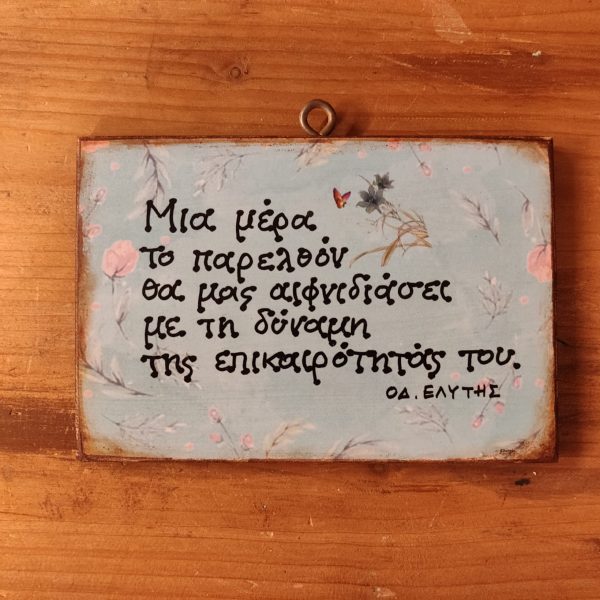 Μια μέρα
το παρελθόν
θα μας αιφνιδιάσει
με τη δύναμη
της επικαιρότητάς του.
ΟΔ. ΕΛΥΤΗΣ